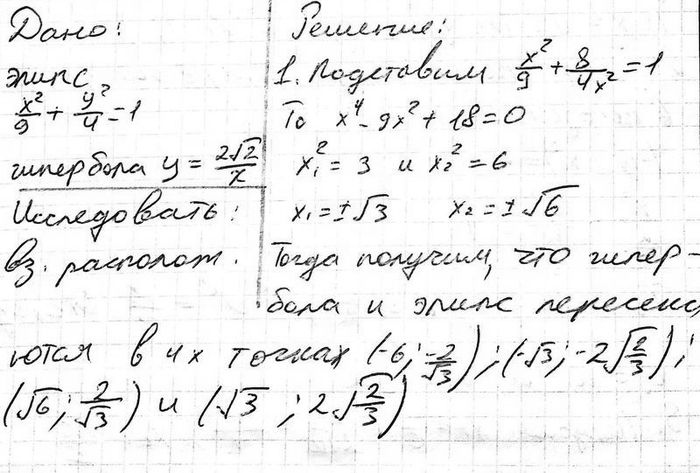 Дано:
эпипс
x²/9 + y²/4 = 1
гипербола y = 2√2/x
Исследовать:
вз. располож.
Решение:
1. Подставим x²/9 + 8/4x² = 1
То x⁴ - 9x² + 18 = 0
x₁² = 3 и x₂² = 6
x₁ = ±√3 x₂ = ±√6
Тогда получим, что гипер-
бола и эпипс пересека
ются в 4х точках (-6; -2/√3); (-√3; -2√(2/3));
(√6; 2/√3) и (√3; 2√(2/3))